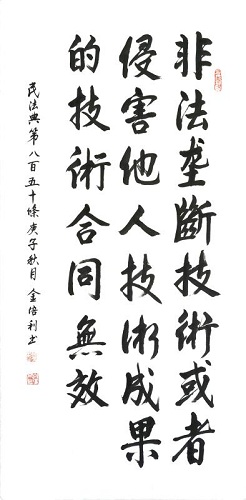 非法垄斷技術或者
侵害他人技術成果
的技術合同無效
民法典第八百五十條庚子秋月金倍利书